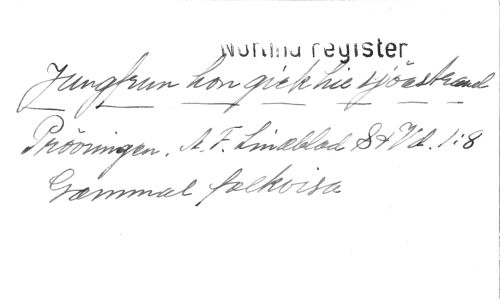 Nordlind register
Jungfrun hon gick hie sjöastrand
Pröfningen. A. F. Lindblad S & V d. 1:8
Gammal folkvisa